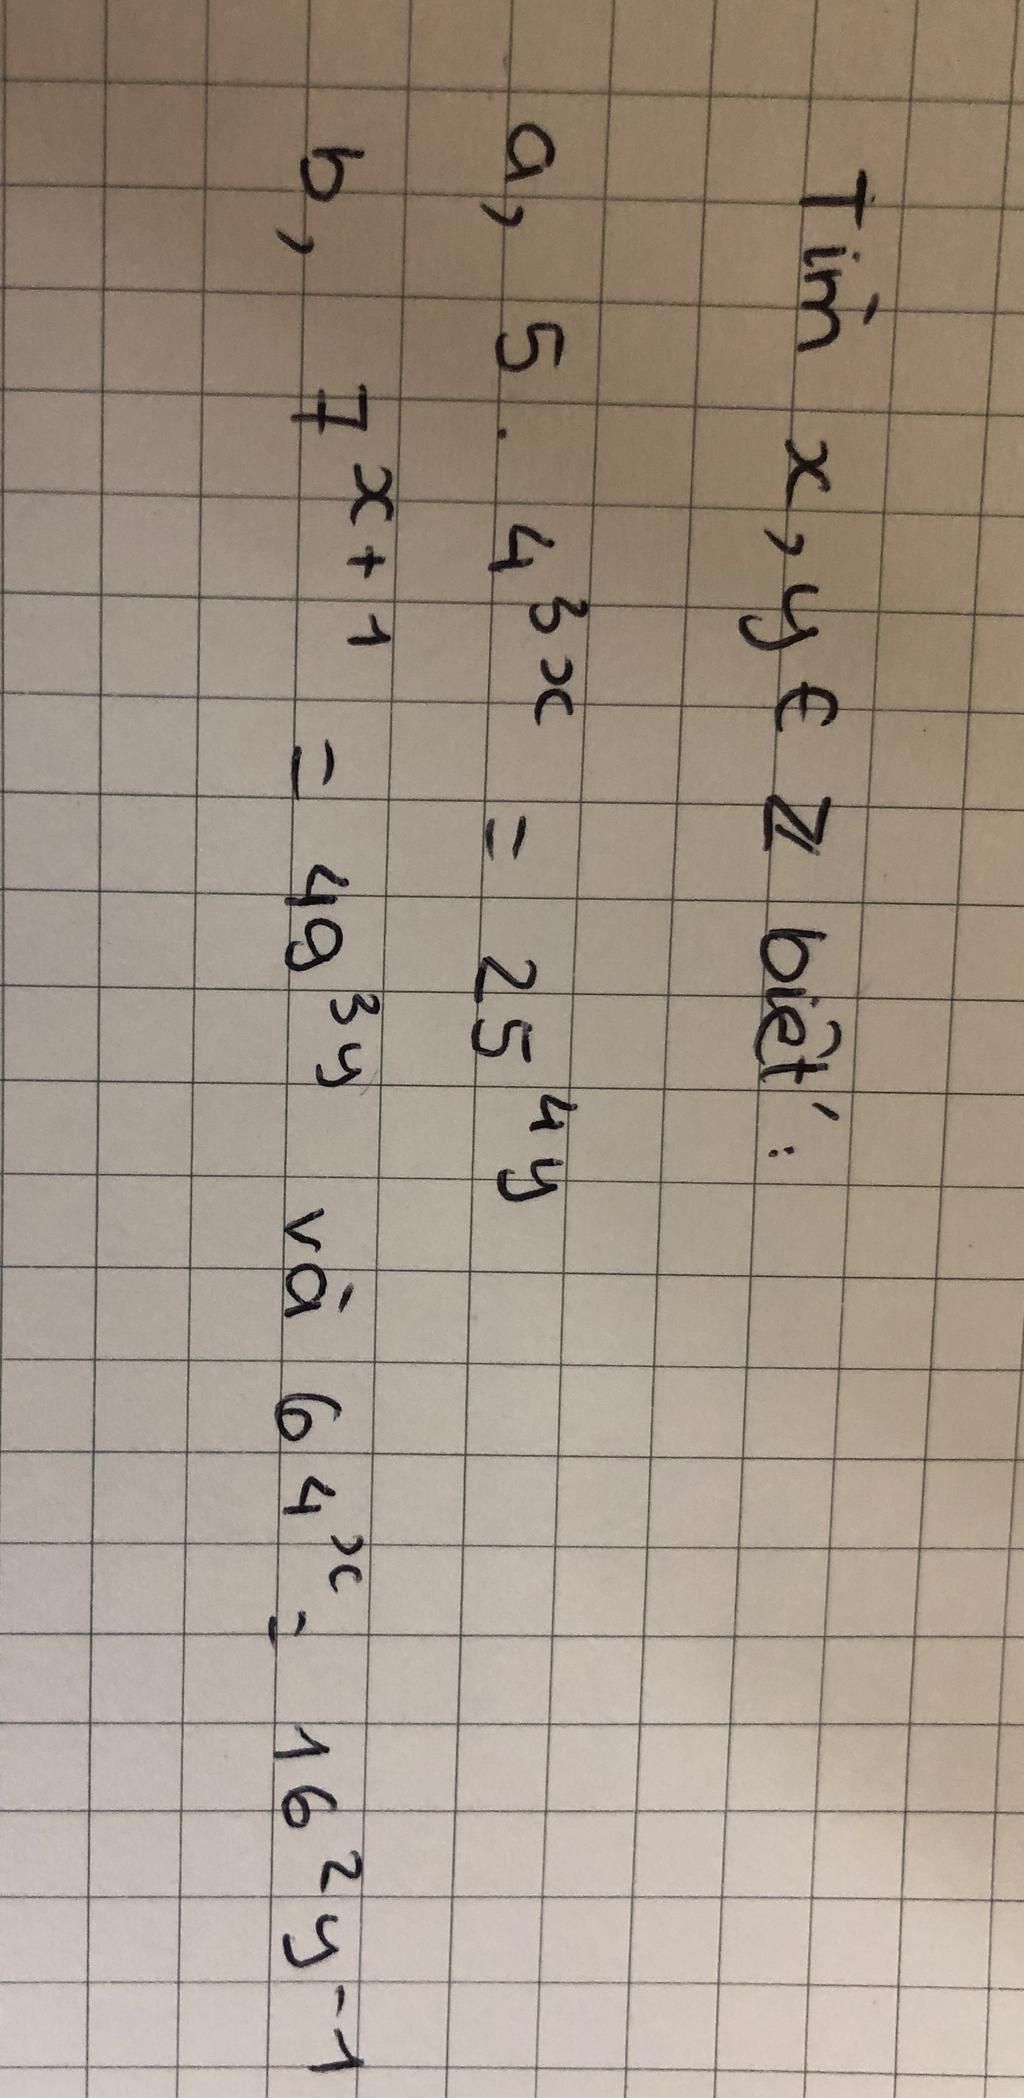 Tìm x, y ∈ ℤ biết:
a, 5 . 4³ˣ = 25⁴ʸ
b, 7ˣ⁺¹ = 49³ʸ và 64ˣ = 16²ʸ⁻¹